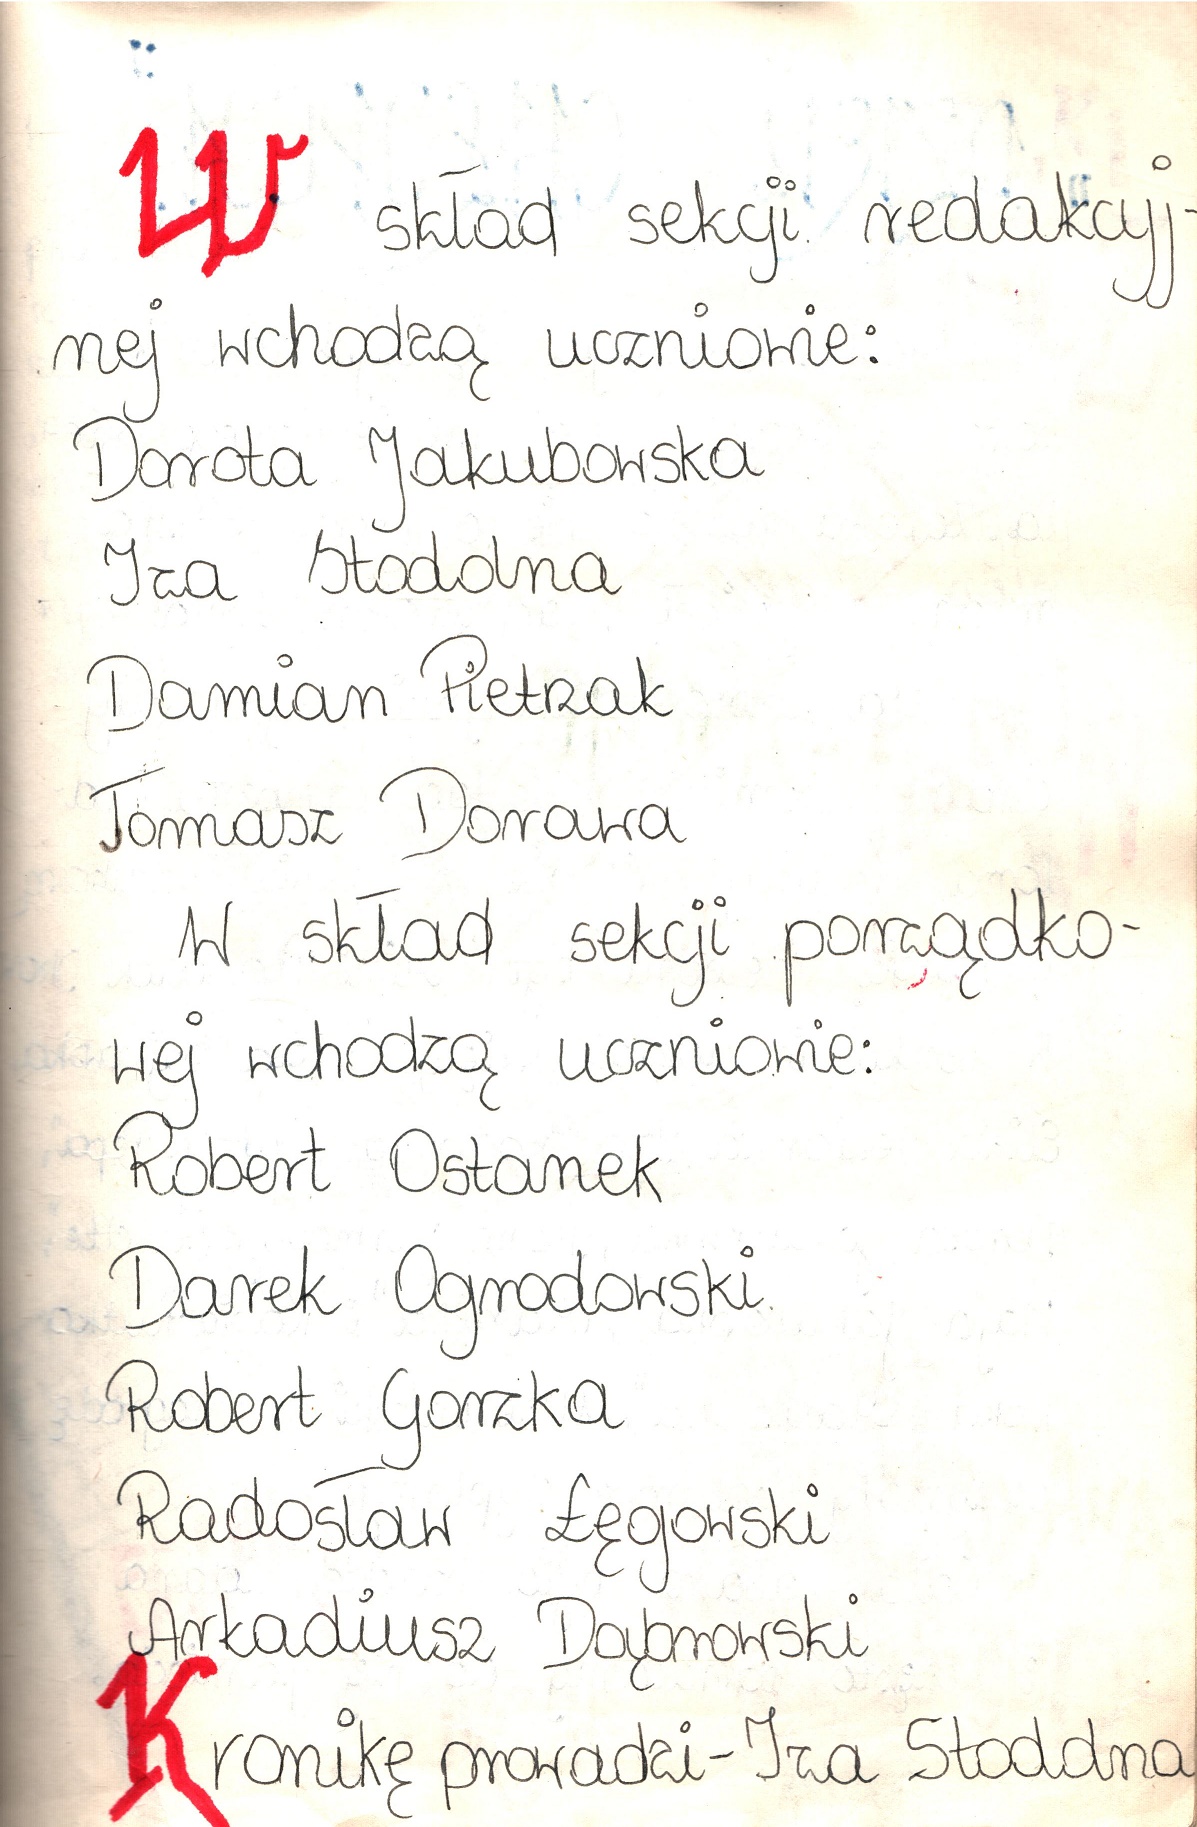 W skład sekcji redakcyj-
nej wchodzą uczniowie:
Dorota Jakubowska
Iza Stodolna
Damian Pietrzak
Tomasz Dorawa
W skład sekcji porządko-
wej wchodzą uczniowie:
Robert Ostanek
Darek Ogrodowski
Robert Gorzka
Radosław Łęgowski
Arkadiusz Dąbrowski
Kronikę prowadzi-Iza Stodolna